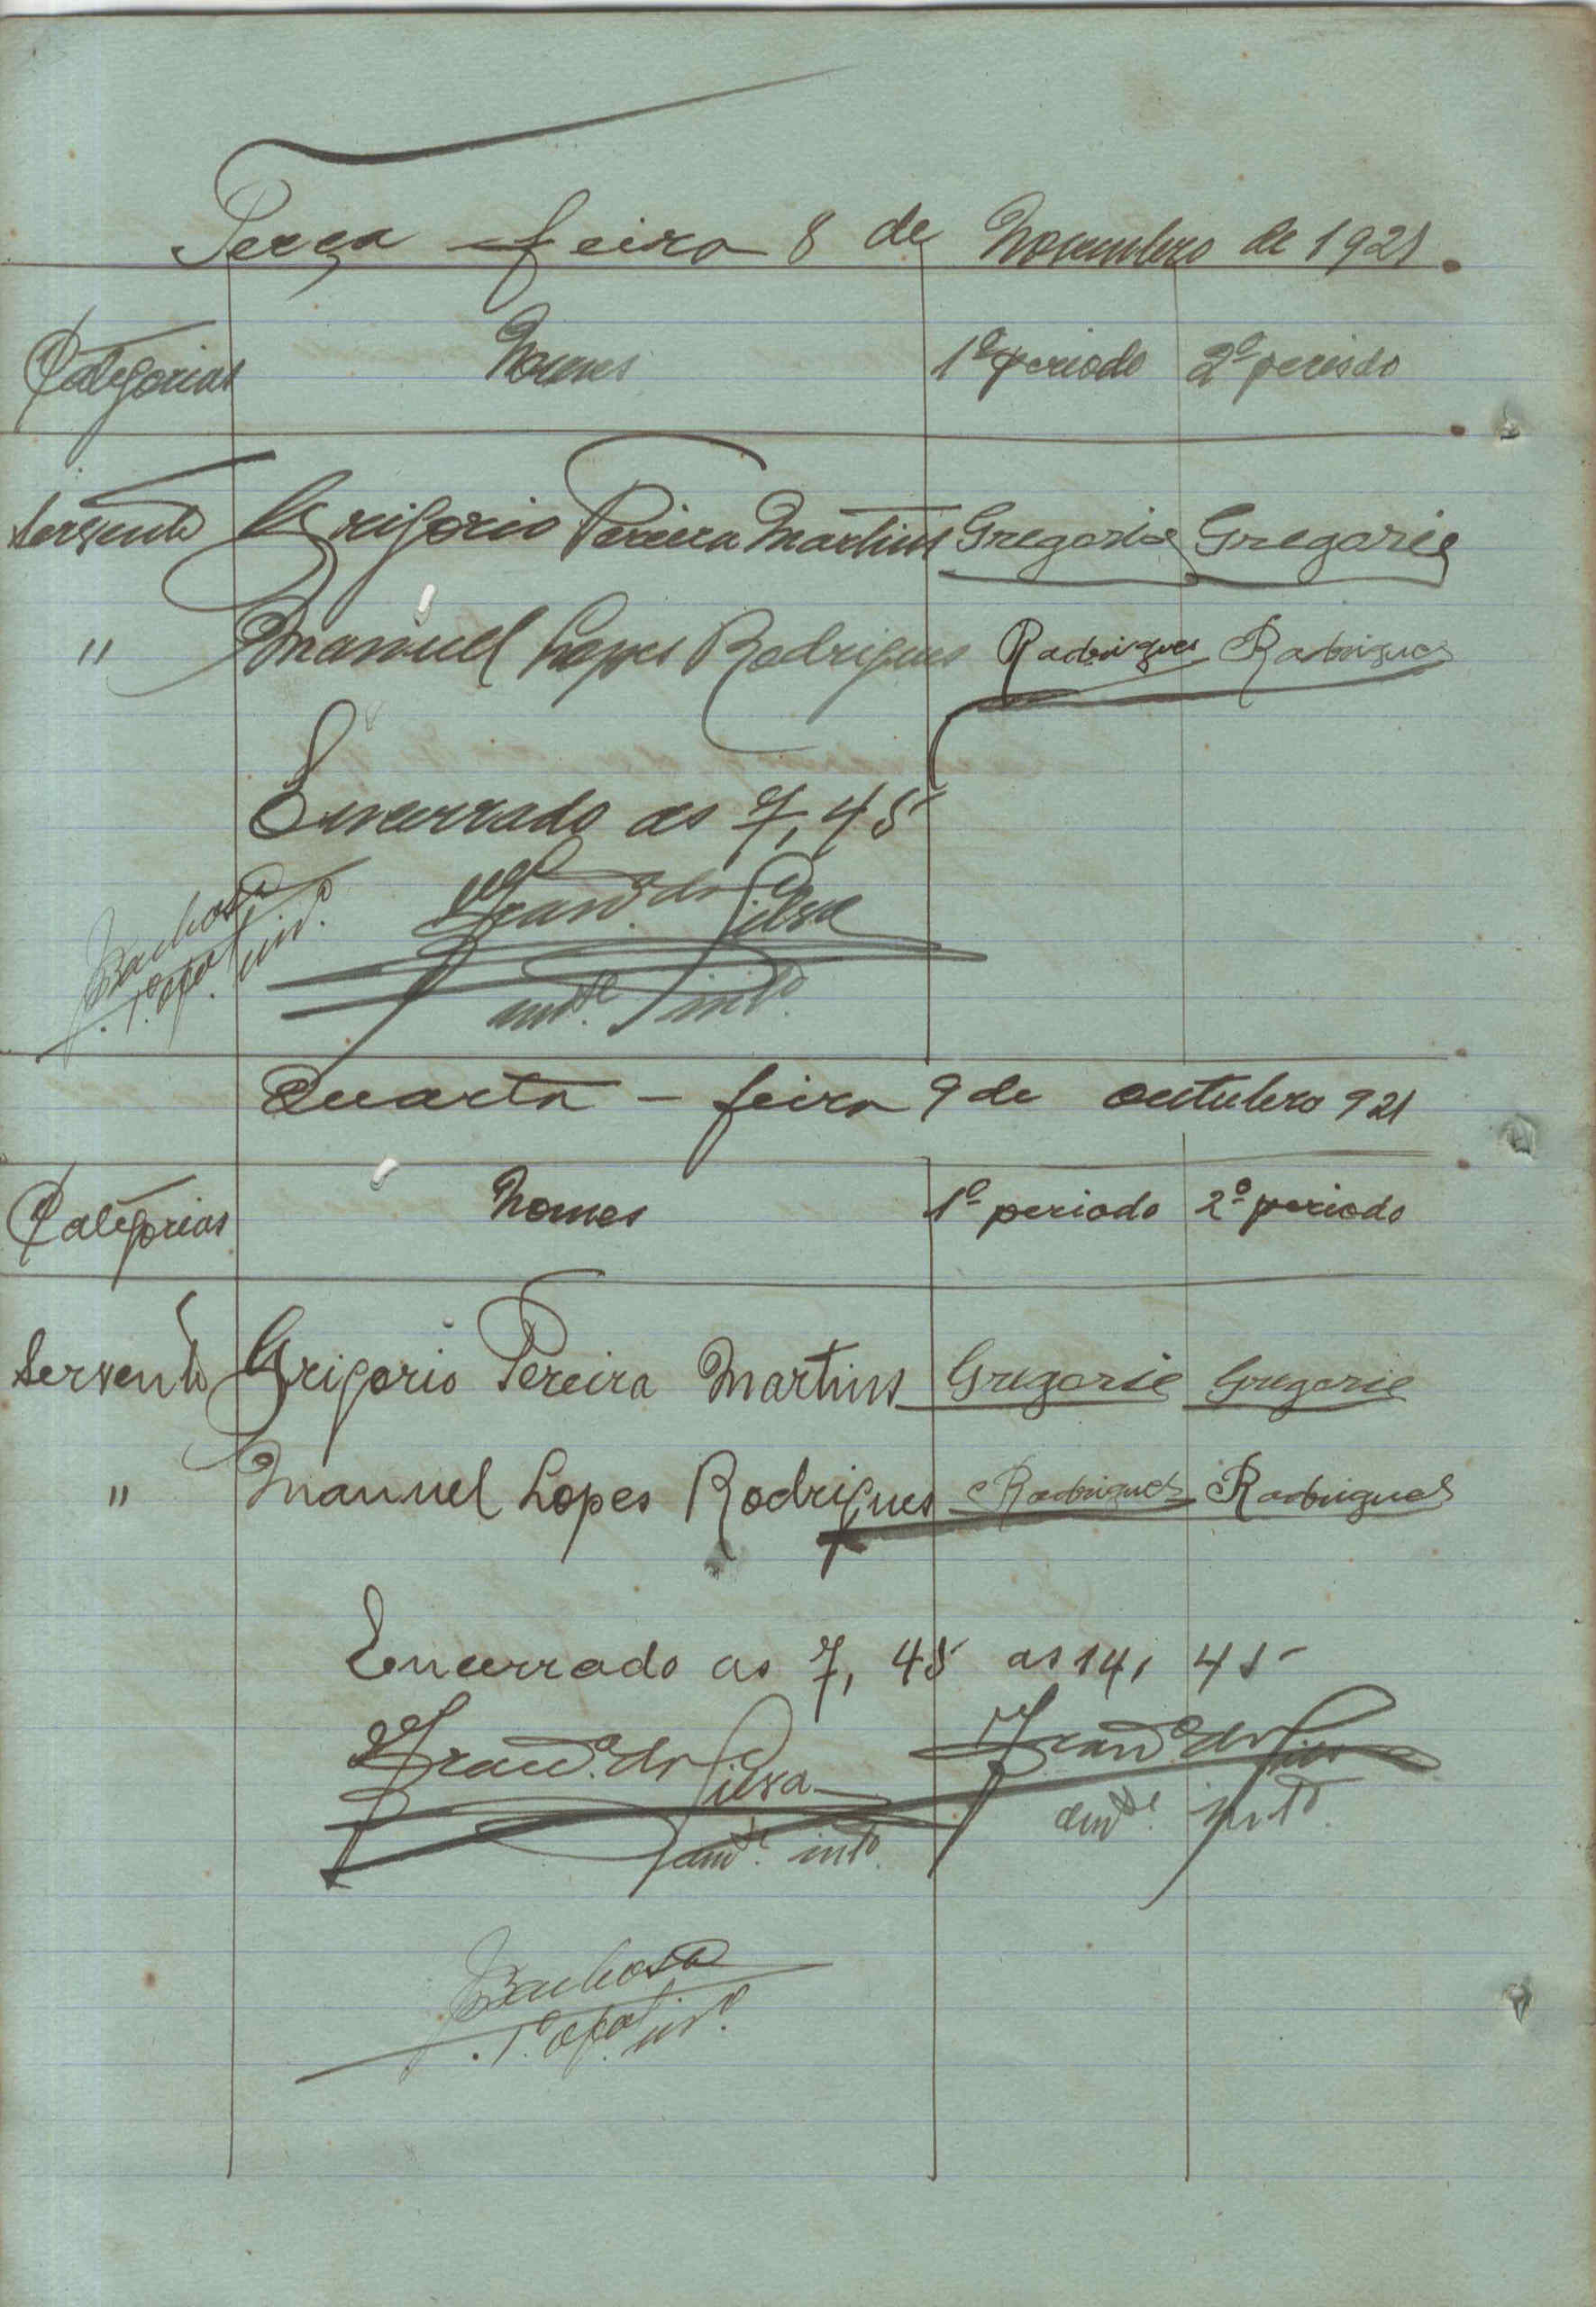 Terça - feira 8 de Novembro de 1921.
Categorias Nomes 1º periodo 2º periodo
Servente Grigorio Pereira Martins Gregorio Gregorio
" Manuel Lopes Rodrigues Rodrigues Rodrigues
Encerrado as 7,45
Franco. da Silva
Barbosa
Quarta - feira 9 de Outubro 921
Categorias Nomes 1º periodo 2º periodo
Servente Grigorio Pereira Martins Gregorio Gregorio
" Manuel Lopes Rodrigues Rodrigues Rodrigues
Encerrado as 7,45 as 14,45
Franco. da Silva Franco. da Silva
Barbosa